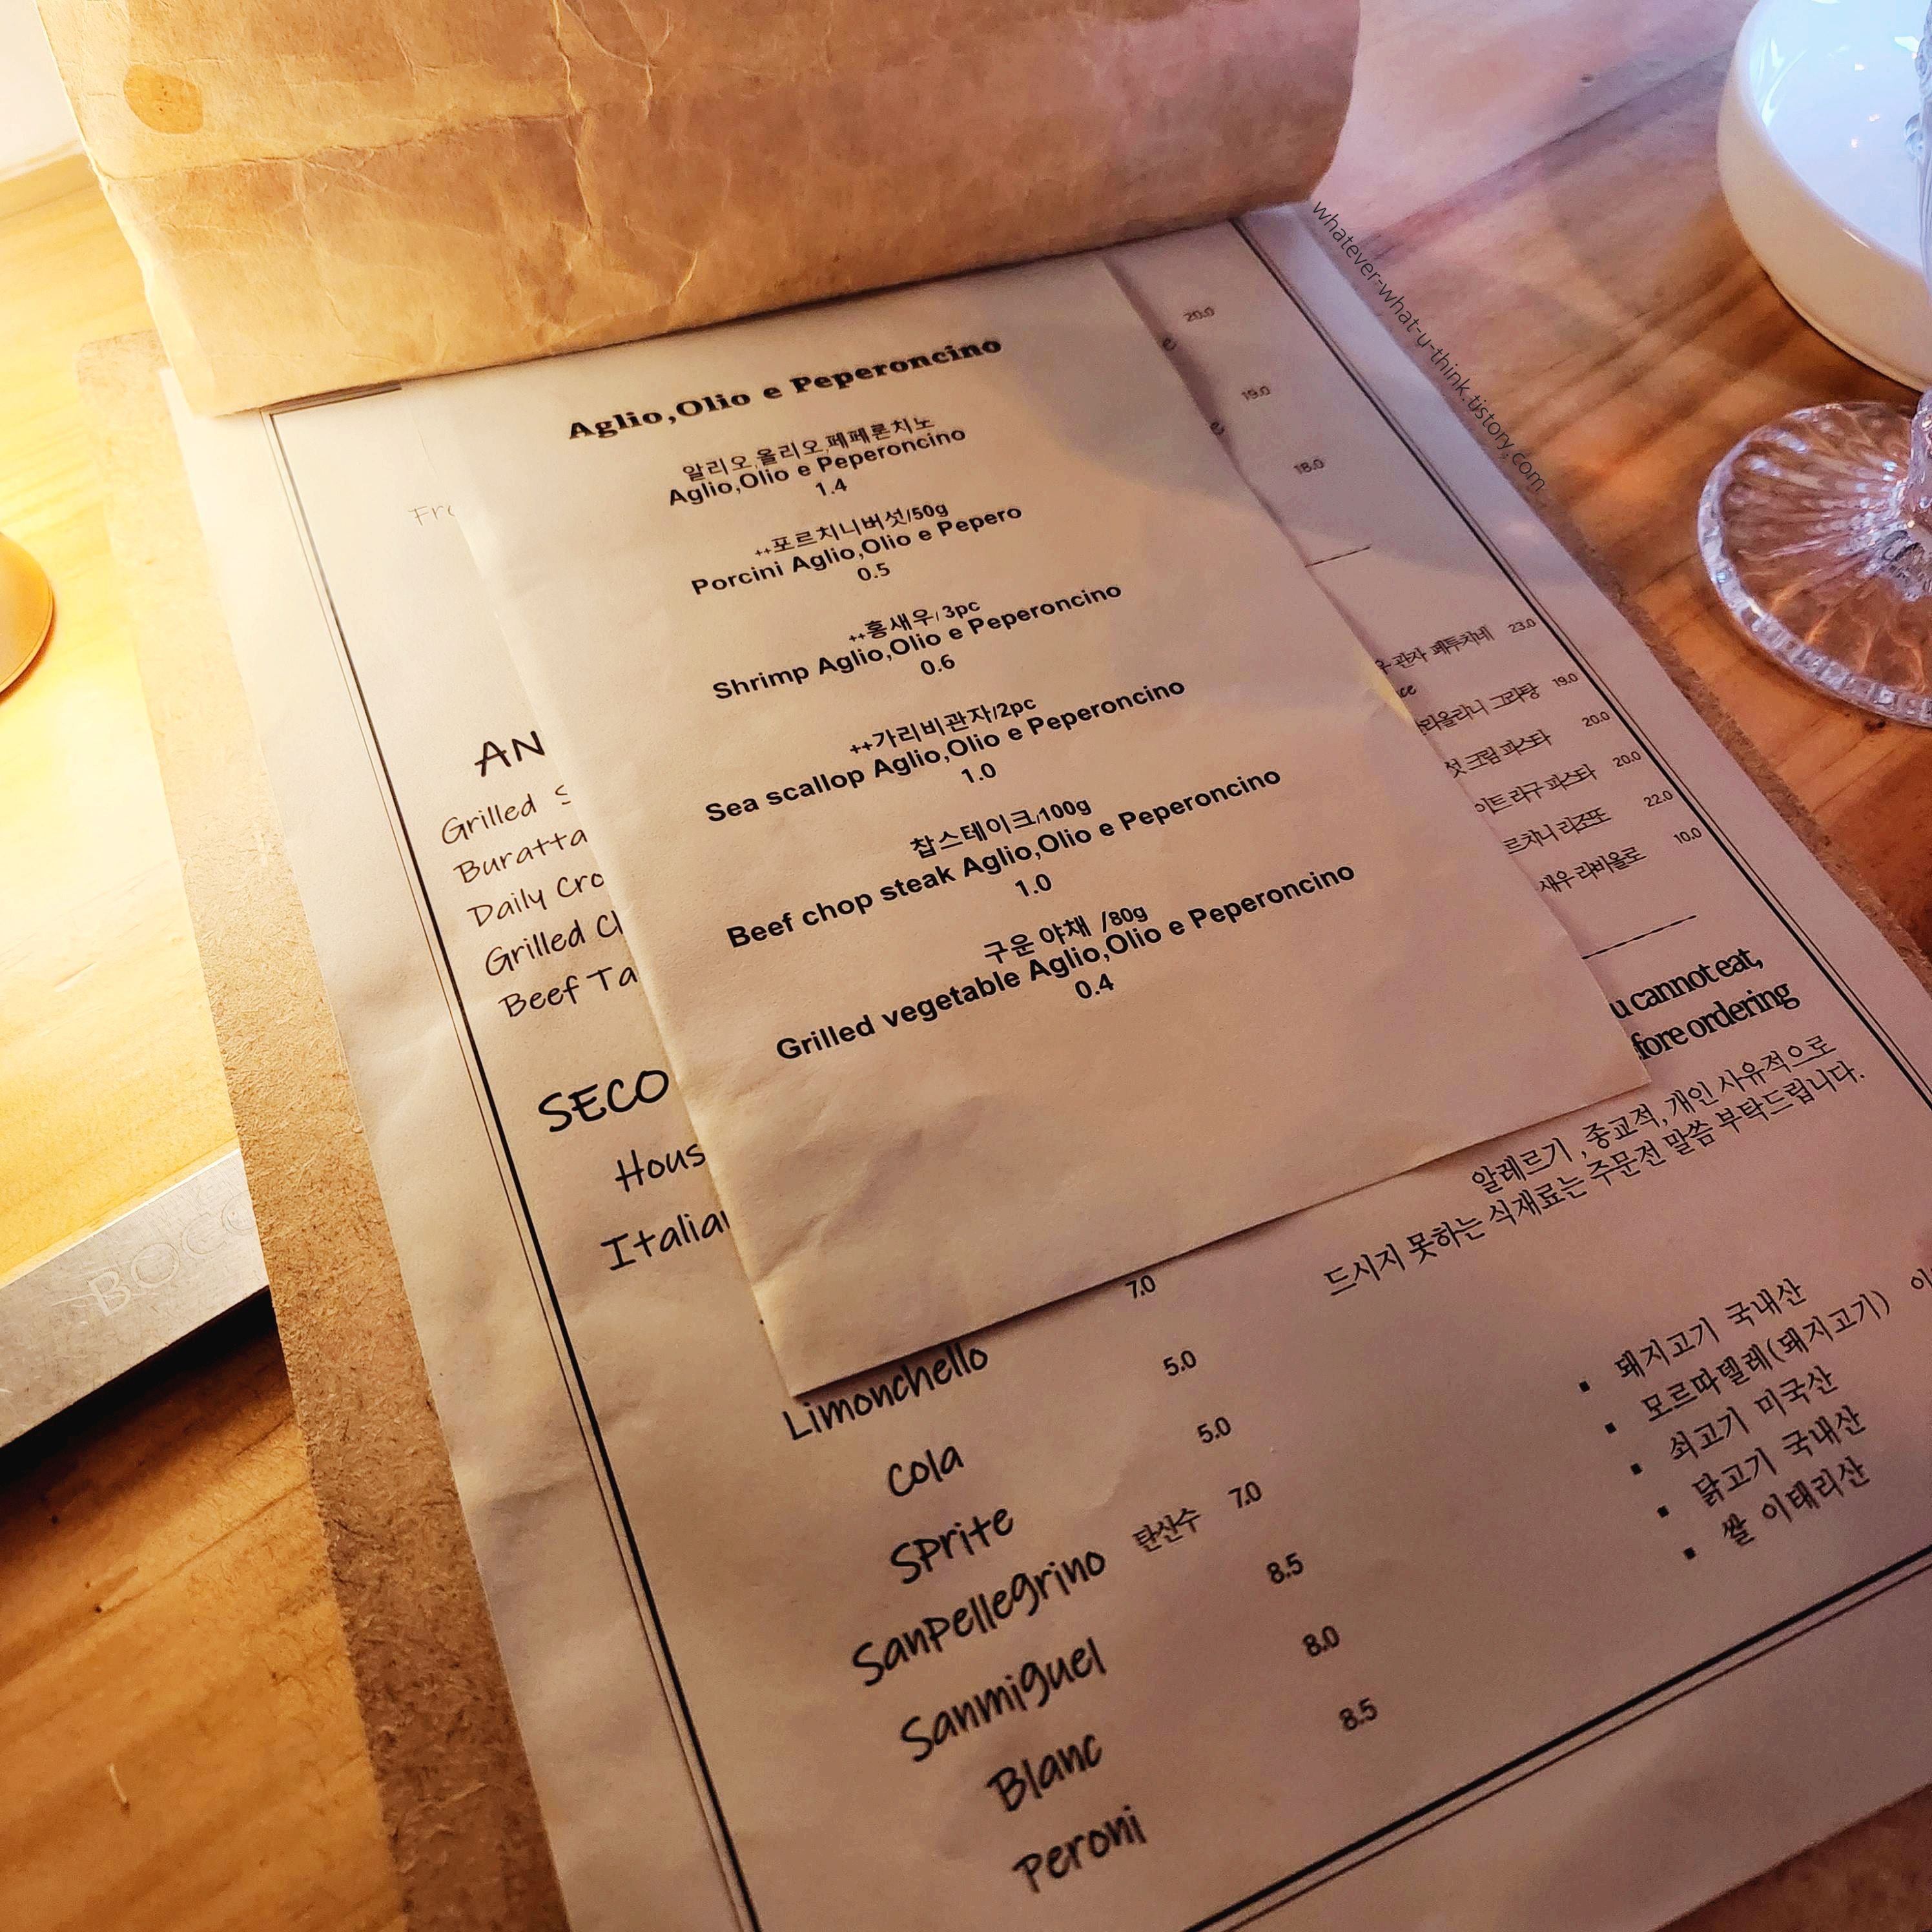 Aglio,Olio e Peperoncino
알리오,올리오,페페론치노
Aglio,Olio e Peperoncino
1.4
++포르치니버섯/50g
Porcini Aglio,Olio e Pepero
0.5
++홍새우/3pc
Shrimp Aglio,Olio e Peperoncino
0.6
++가리비관자/2pc
Sea scallop Aglio,Olio e Peperoncino
1.0
찹스테이크/100g
Beef chop steak Aglio,Olio e Peperoncino
1.0
구운 야채 /80g
Grilled vegetable Aglio,Olio e Peperoncino
0.4
AN
Grilled S
Buratta
Daily Cro
Grilled Ch
Beef Ta
SECO
Hous
Italian
7.0
Limonchello 5.0
Cola 5.0
Sprite
SanPellegrino 탄산수 7.0
Sanmiguel 8.5
Blanc 8.0
Peroni 8.5
20.0
e
19.0
e
18.0
관자 페투치네 23.0
ce
라올리니 그라탕 19.0
크림 파스타 20.0
이트 라구 파스타 20.0
르치니 리조또 22.0
새우 라비올로 10.0
u cannot eat,
fore ordering
알레르기 , 종교적, 개인 사유적으로
드시지 못하는 식재료는 주문전 말씀 부탁드립니다.
▪ 돼지고기 국내산
▪ 모르따델레(돼지고기) 이
▪ 쇠고기 미국산
▪ 닭고기 국내산
▪ 쌀 이태리산
BOCC
whatever-what-u-think.tistory.com